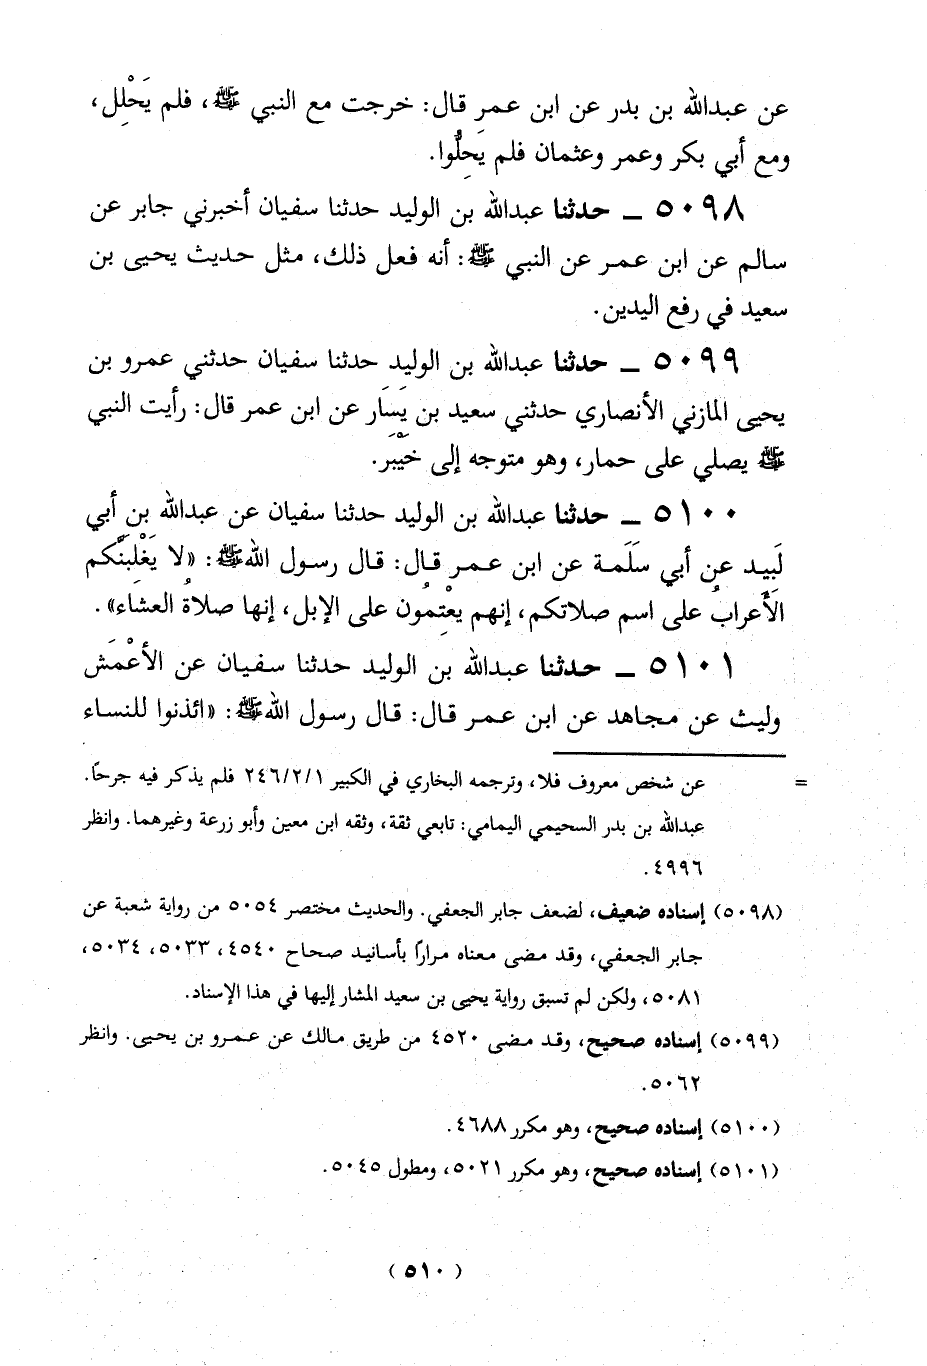 عن عبدالله بن بدر عن ابن عمر قال: خرجت مع النبي ﷺ، فلم يَحْلِل،
ومع أبي بكر وعمر وعثمان فلم يَحِلُّوا.
٥٠٩٨ ــ حدثنا عبدالله بن الوليد حدثنا سفيان أخبرني جابر عن
سالم عن ابن عمر عن النبي ﷺ: أنه فعل ذلك، مثل حديث يحيى بن
سعيد في رفع اليدين.
٥٠٩٩ ــ حدثنا عبدالله بن الوليد حدثنا سفيان حدثني عمرو بن
يحيى المازني الأنصاري حدثني سعيد بن يَسَار عن ابن عمر قال: رأيت النبي
ﷺ يصلي على حمار، وهو متوجه إلى خَيْبَر.
٥١٠٠ ــ حدثنا عبدالله بن الوليد حدثنا سفيان عن عبدالله بن أبي
لَبِيد عن أبي سَلَمة عن ابن عمر قال: قال رسول الله ﷺ: «لا يَغْلِبَنَّكم
الأَعرابُ على اسم صلاتكم، إنهم يُعْتِمون على الإبل، إنها صلاة العشاء».
٥١٠١ ــ حدثنا عبدالله بن الوليد حدثنا سفيان عن الأَعْمَش
وليث عن مجاهد عن ابن عمر قال: قال رسول الله ﷺ: «ائذنوا للنساء
= عن شخص معروف فلا، وترجمه البخاري في الكبير ٢٤٦/٢/١ فلم يذكر فيه جرحًا.
عبدالله بن بدر السحيمي اليمامي: تابعي ثقة، وثقه ابن معين وأبو زرعة وغيرهما. وانظر
٤٩٩٦.
(٥٠٩٨) إسناده ضعيف، لضعف جابر الجعفي. والحديث مختصر ٥٠٥٤ من رواية شعبة عن
جابر الجعفي، وقد مضى معناه مرارًا بأسانيد صحاح ٤٥٤٠، ٥٠٣٣، ٥٠٣٤،
٥٠٨١، ولكن لم تسبق رواية يحيى بن سعيد المشار إليها في هذا الإسناد.
(٥٠٩٩) إسناده صحيح، وقد مضى ٤٥٢٠ من طريق مالك عن عمرو بن يحيى. وانظر
٥٠٦٢.
(٥١٠٠) إسناده صحيح، وهو مكرر ٤٦٨٨.
(٥١٠١) إسناده صحيح، وهو مكرر ٥٠٢١، ومطول ٥٠٤٥.
(٥١٠)